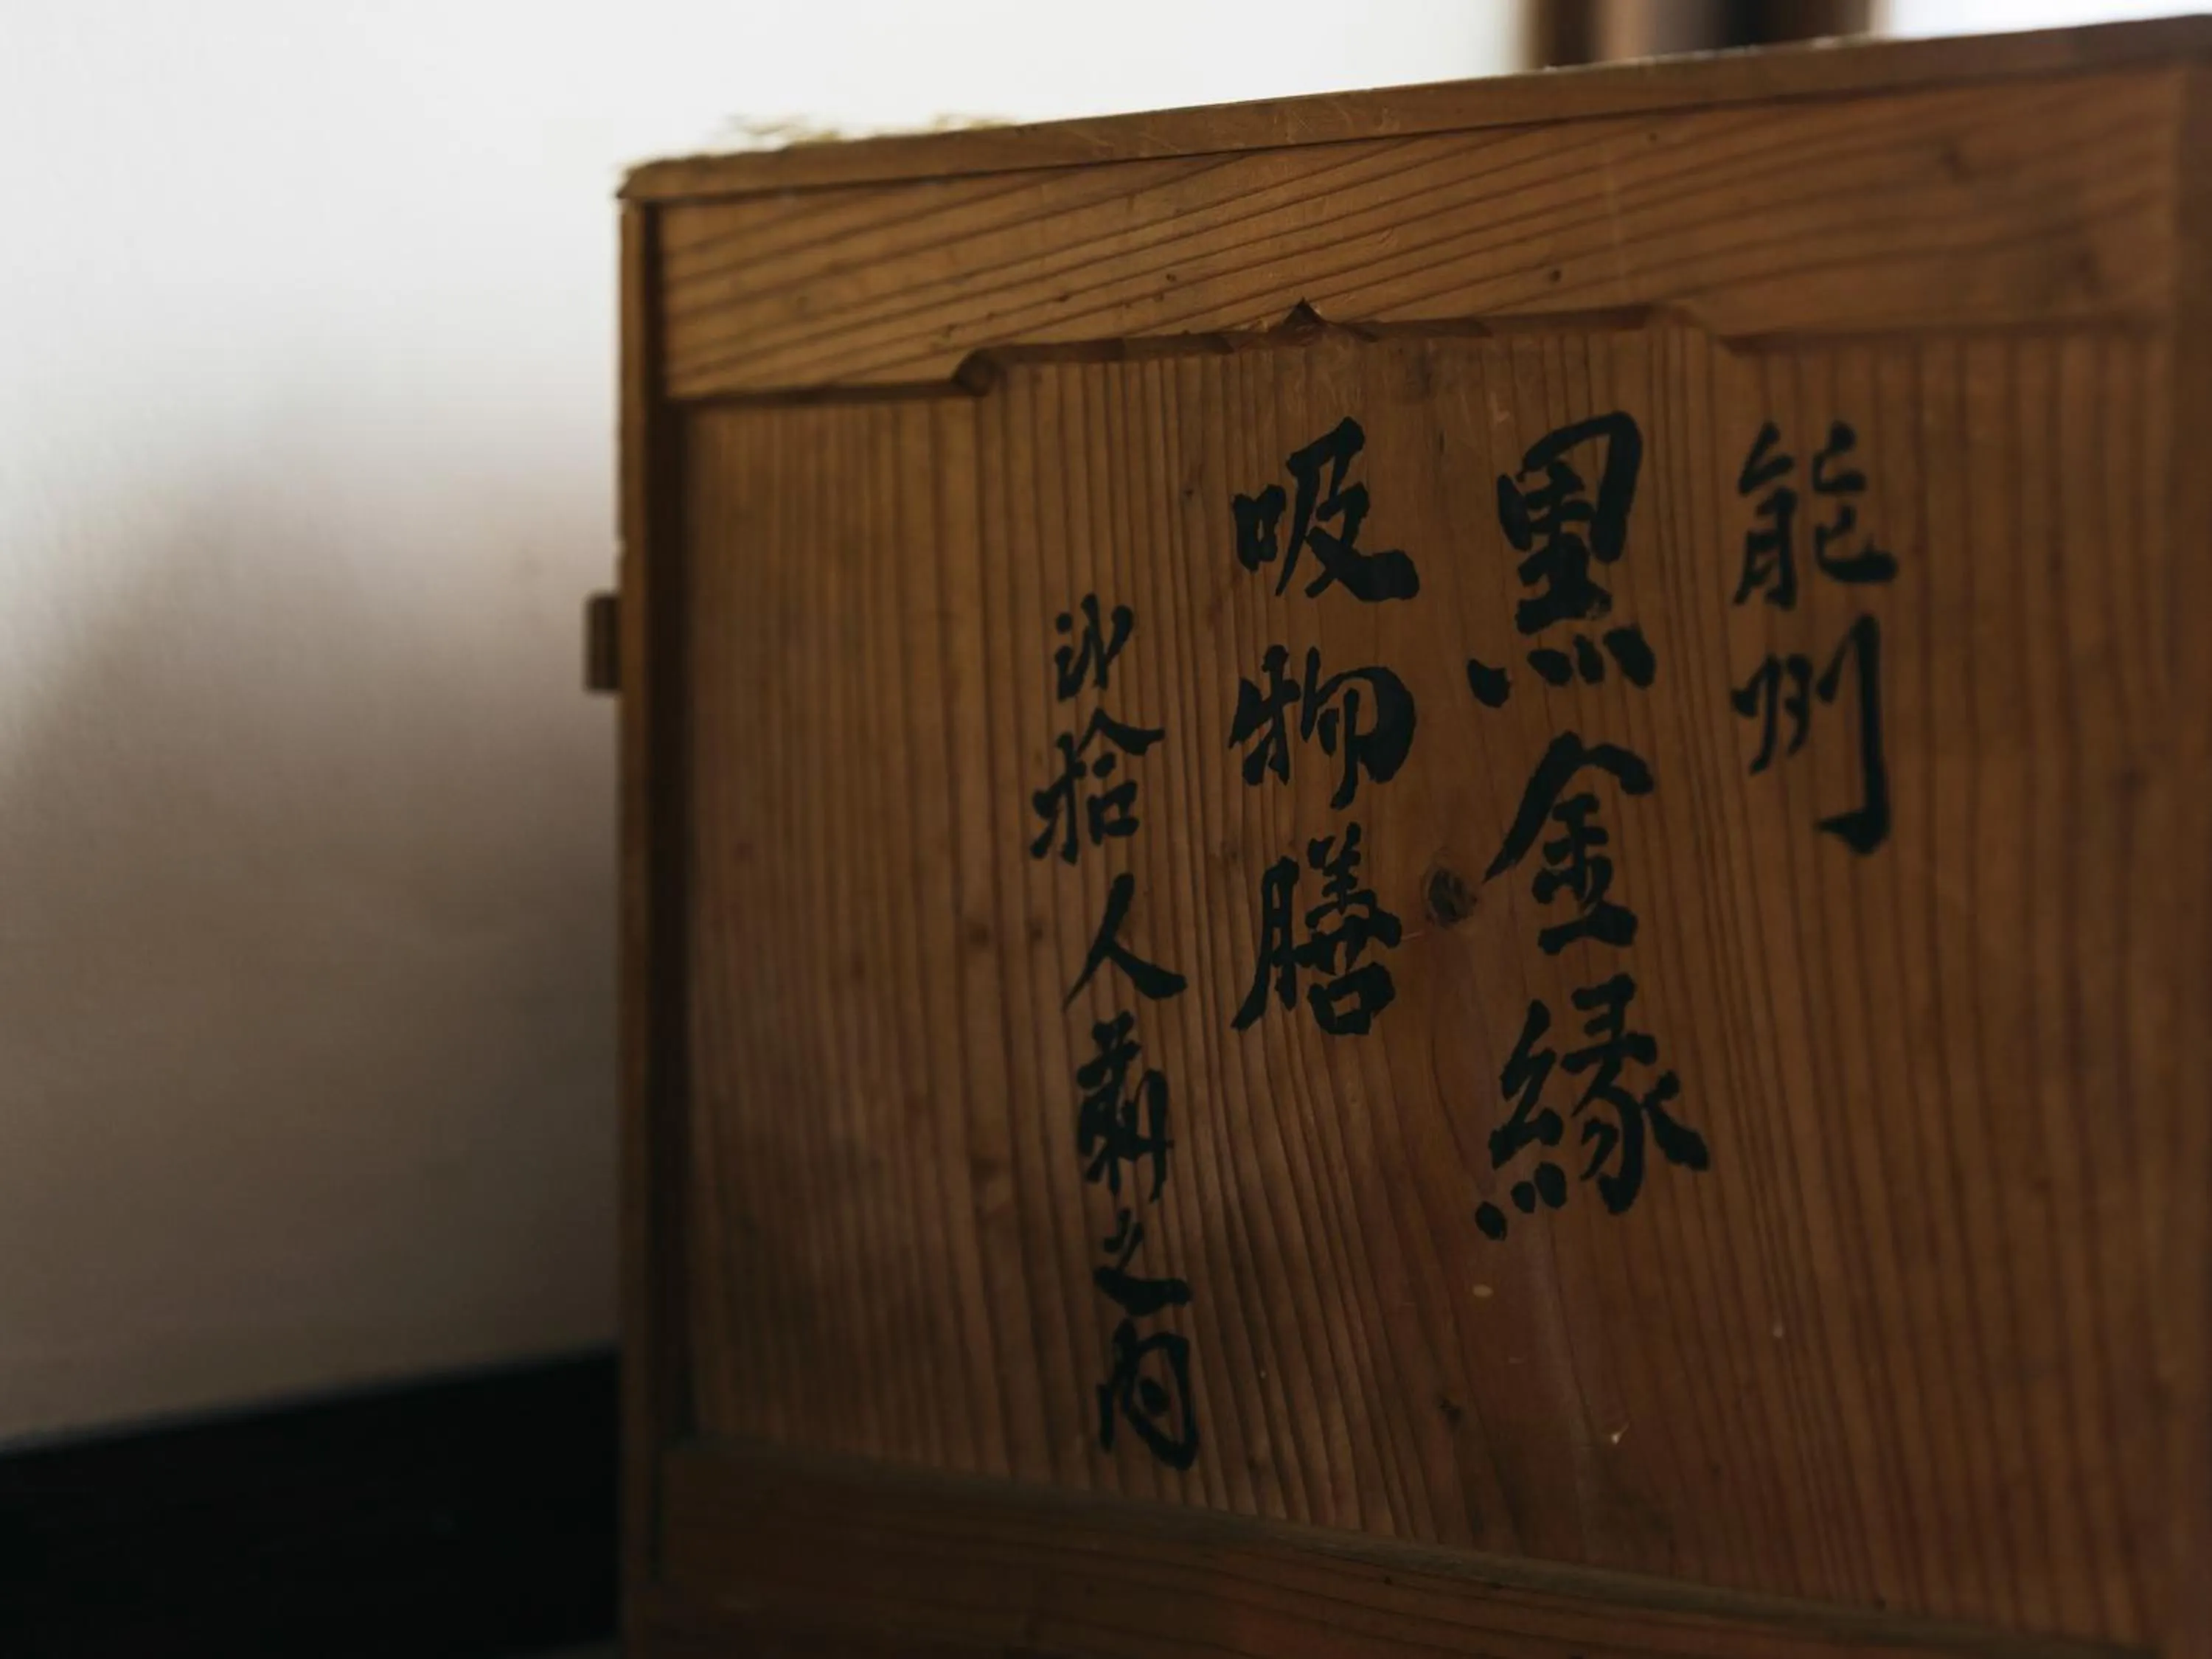 能州
黒金縁
吸物膳
拾人前之内